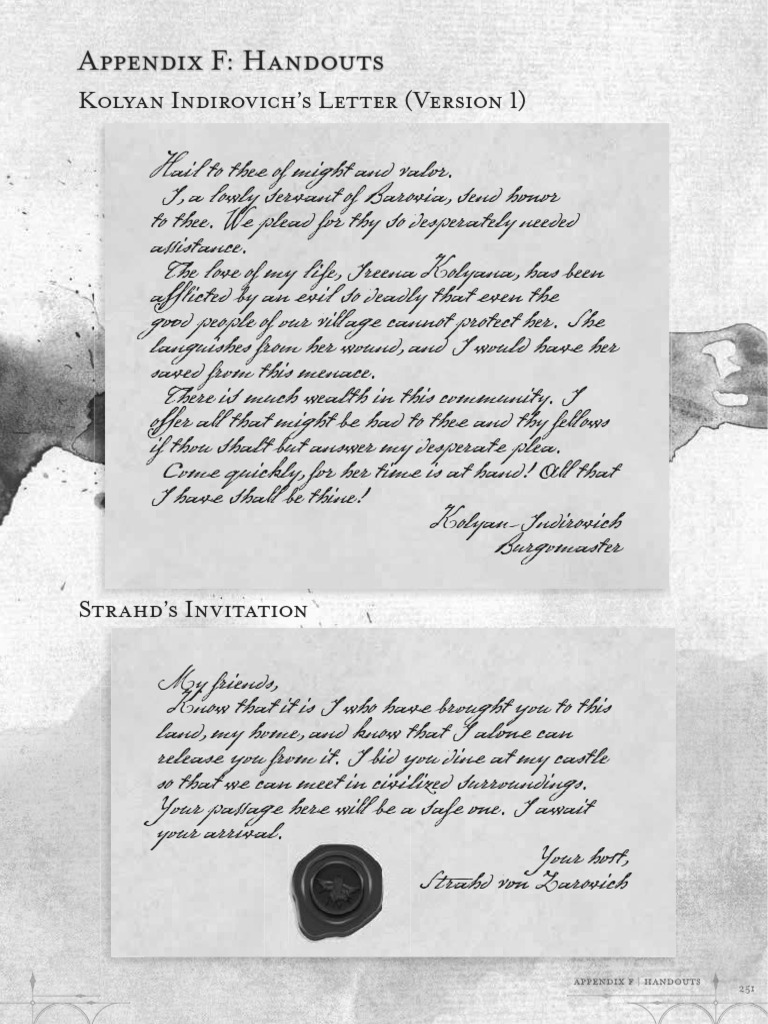 Appendix F: Handouts
Kolyan Indirovich's Letter (Version 1)
Hail to thee of might and valor.
I, a lowly servant of Barovia, send honor
to thee. We plead for thy so desperately needed
assistance.
The love of my life, Ireena Kolyana, has been
afflicted by an evil so deadly that even the
good people of our village cannot protect her. She
languishes from her wound, and I would have her
saved from this menace.
There is much wealth in this community. I
offer all that might be had to thee and thy fellows
if thou shalt but answer my desperate plea.
Come quickly, for her time is at hand! All that
I have shall be thine!
Kolyan Indirovich
Burgomaster
Strahd's Invitation
My friends,
Know that it is I who have brought you to this
land, my home, and know that I alone can
release you from it. I bid you dine at my castle
so that we can meet in civilized surroundings.
Your passage here will be a safe one. I await
your arrival.
Your host,
Strahd von Zarovich
APPENDIX F | HANDOUTS
251